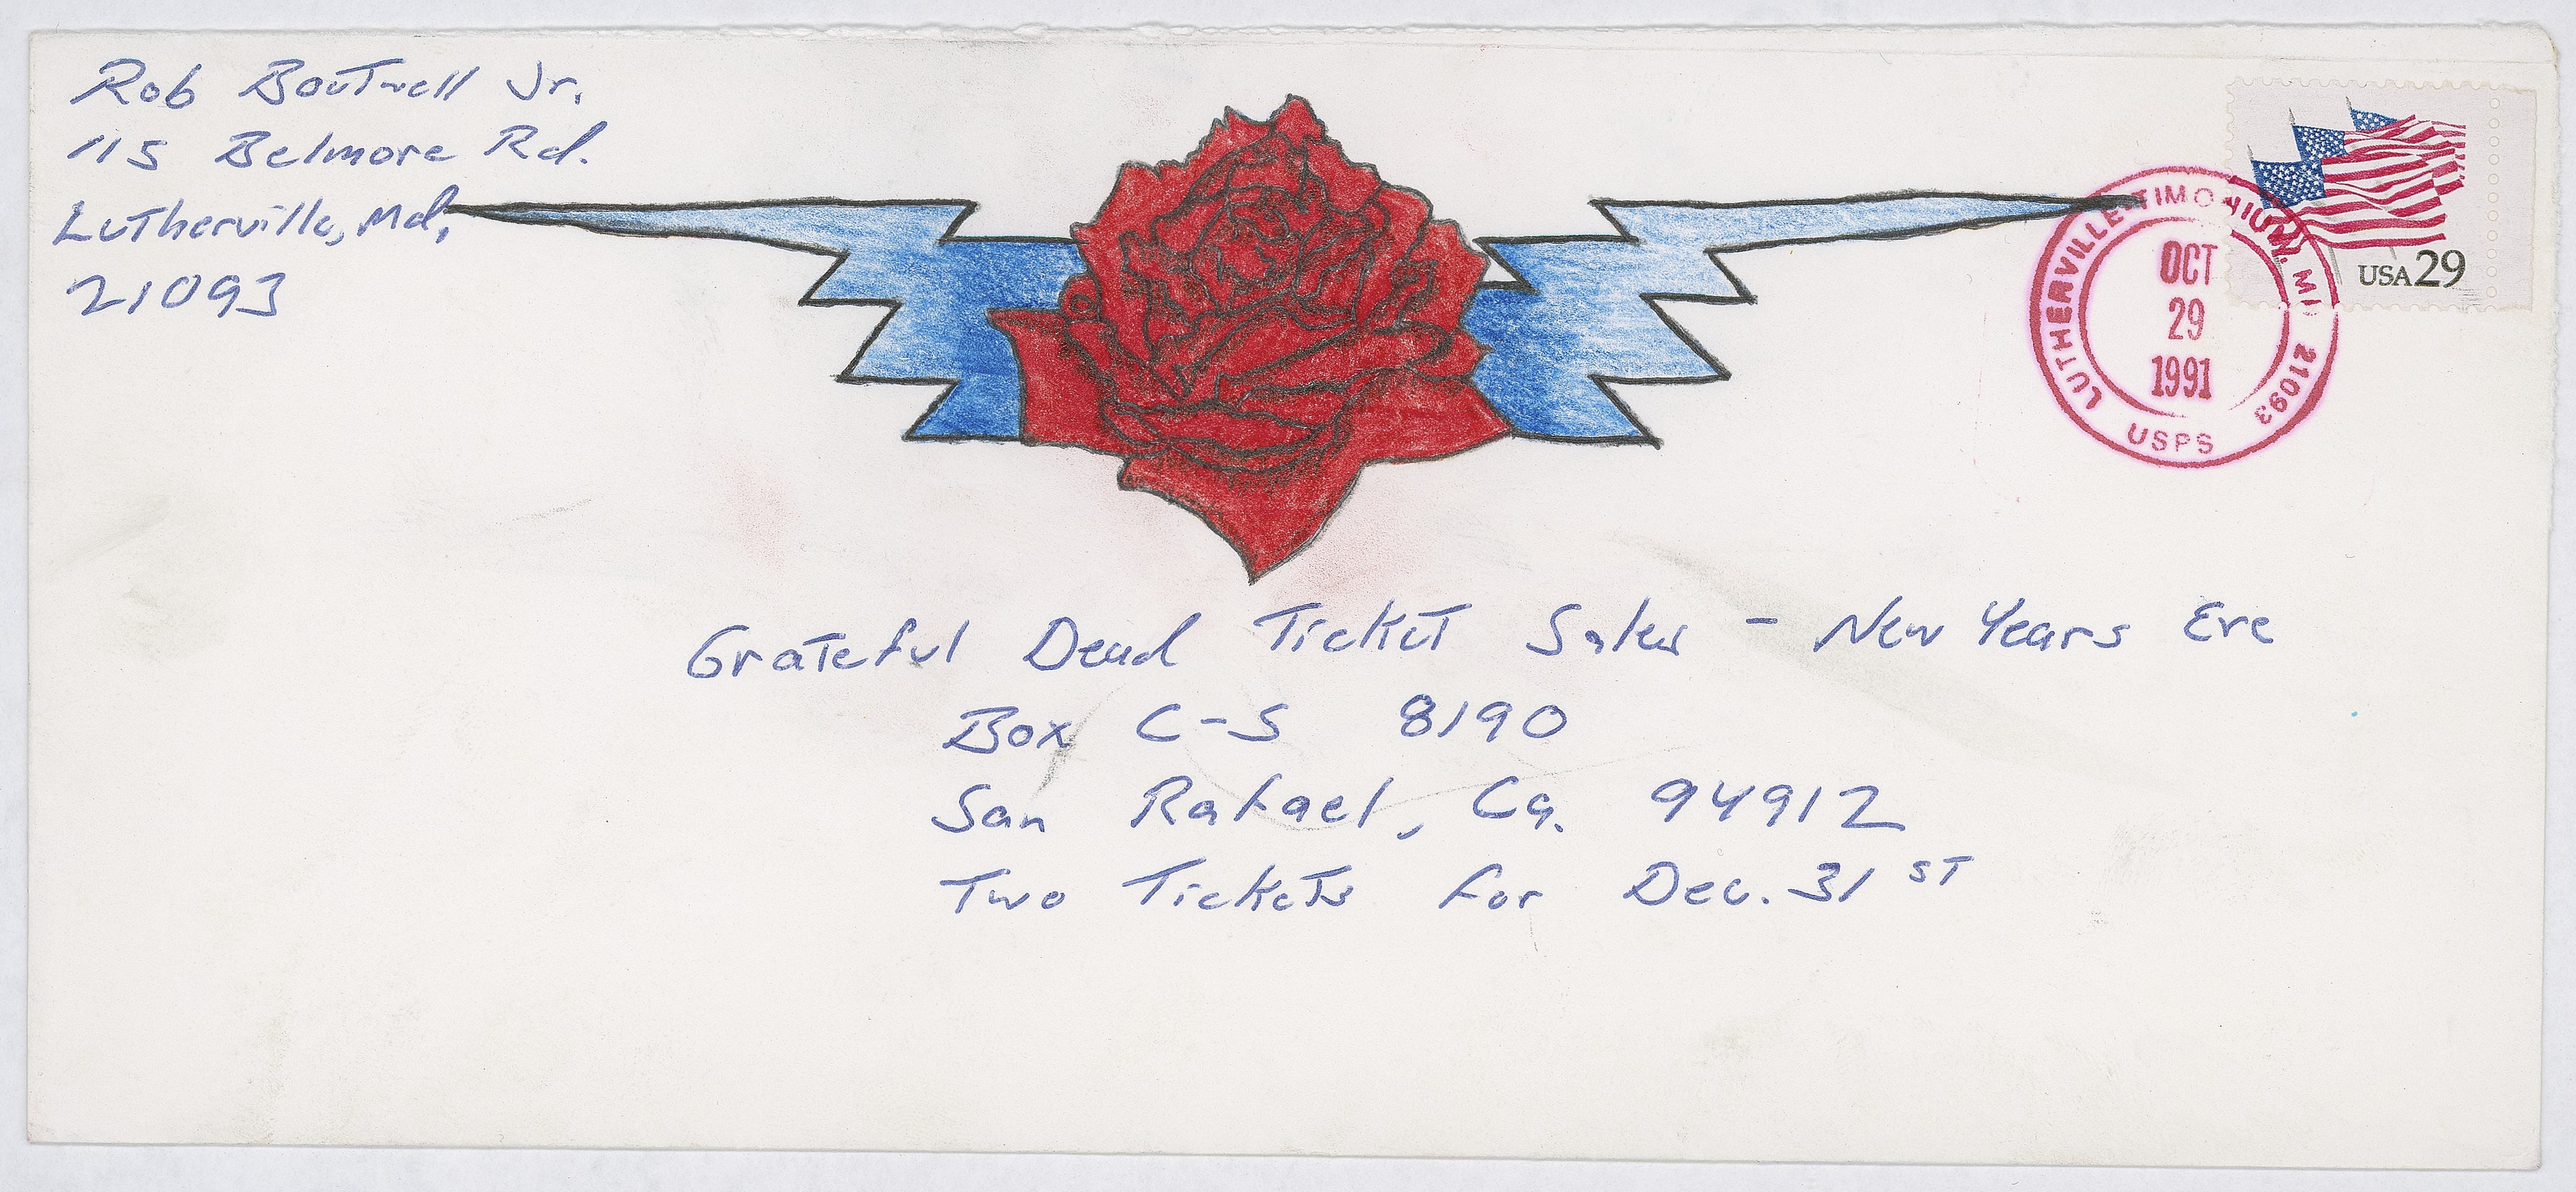 Rob Boutwell Jr.
115 Belmore Rd.
Lutherville, Md,
21093
USA 29
LUTHERVILLE-TIMONIUM, MD 21093
OCT
29
1991
USPS
Grateful Dead Ticket Sales - New Years Eve
Box C-S 8190
San Rafael, Ca. 94912
Two Tickets for Dec. 31ST